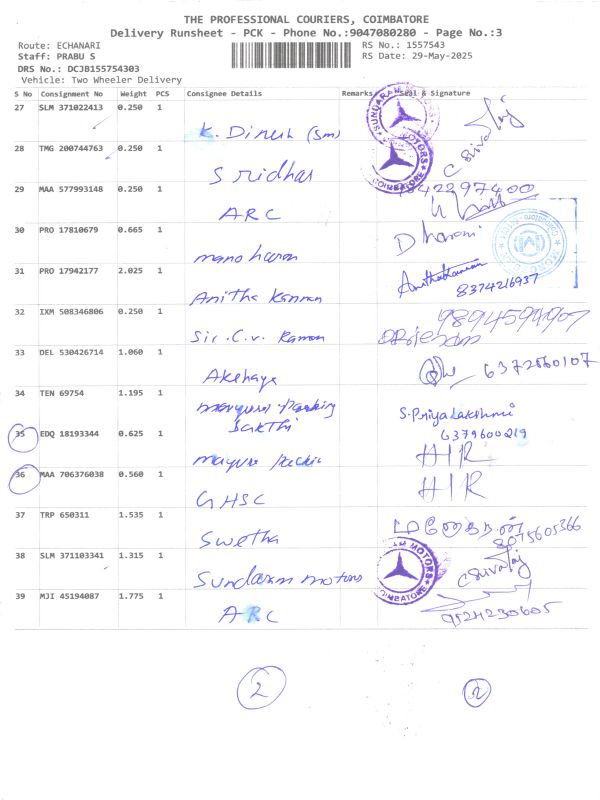 THE PROFESSIONAL COURIERS, COIMBATORE
Delivery Runsheet - PCK - Phone No.:9047080280 - Page No.:3
Route: ECHANARI
RS No.: 1557543
Staff: PRABU S
RS Date: 29-May-2025
DRS No.: DCJB155754303
Vehicle: Two Wheeler Delivery
S No Consignment No Weight PCS Consignee Details Remarks Seal & Signature
27 SLM 371022413 0.250 1
K. Dinesh (Sm)
SUNDARAM MOTORS
C Sivaraj
28 TMG 200744763 0.250 1
Sridhar
MOTORS
COIMBATORE
29 MAA 577993148 0.250 1
ARC
9842297400
30 PRO 17810679 0.665 1
manoharan
Dharani
31 PRO 17942177 2.025 1
Anitha Kannan
8374216937
32 IXM 508346806 0.250 1
Sir. C.V. Raman
9894594907
33 DEL 530426714 1.060 1
Akshaya
6372860107
34 TEN 69754 1.195 1
Sakthi
S. Priya Lakshmi
6379600219
35 EDQ 18193344 0.625 1
H/R
36 MAA 706376038 0.560 1
GHSC
H/R
37 TRP 650311 1.535 1
Swetha
8075605366
38 SLM 371103341 1.315 1
Sundaram motors
MOTORS
COIMBATORE
C Sivaraj
39 MJI 45194087 1.775 1
ARC
9524230605
2
2